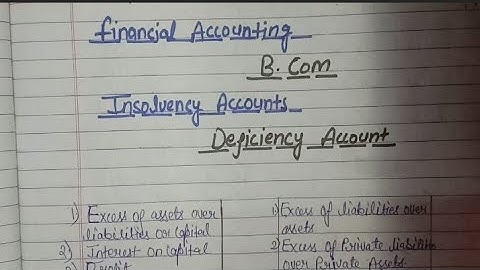 Financial Accounting
B. Com
Insolvency Accounts
Deficiency Account
1) Excess of assets over
liabilities or Capital
2) Interest on Capital
3) Profit
1) Excess of liabilities over
assets
2) Excess of Private liabilities
over Private Assets.